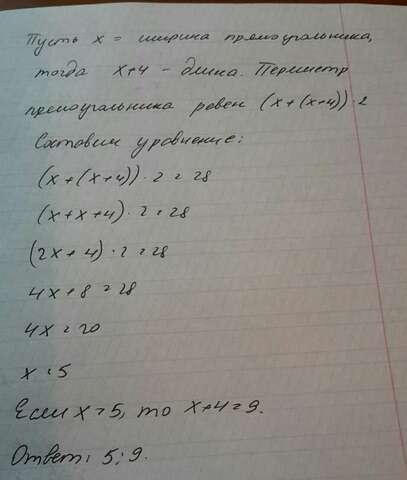 Пусть x = ширина прямоугольника,
тогда x+4 - длина. Периметр
прямоугольника равен (x+(x+4))·2
Составим уравнение:
(x+(x+4))·2=28
(x+x+4)·2=28
(2x+4)·2=28
4x+8=28
4x=20
x=5
Если x=5, то x+4=9.
Ответ: 5; 9.